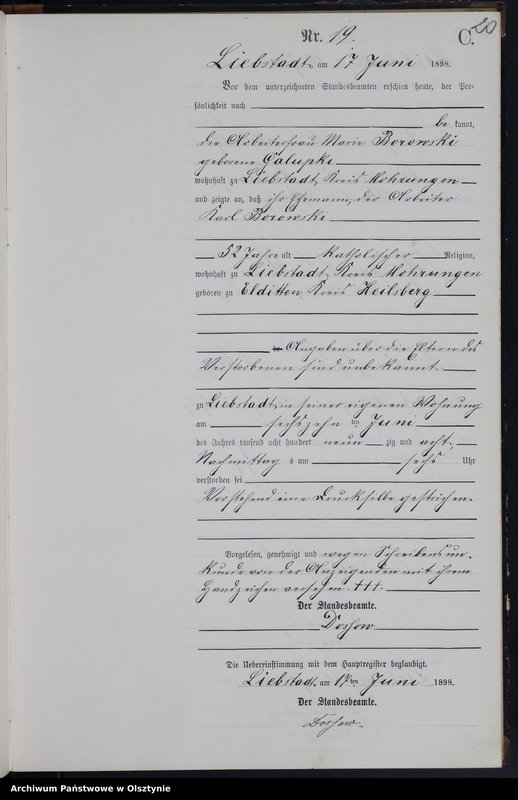 20
Nr. 19.
C.
Liebstadt, am 17 Juni 1898.
Vor dem unterzeichneten Standesbeamten erschien heute, der Per-
sönlichkeit nach
be kannt,
die Arbeiterfrau Marie Borowski
geborene Galupki
wohnhaft zu Liebstadt, Kreis Mohrungen
und zeigte an, daß ihr Ehemann, der Arbeiter
Karl Borowski
52 Jahre alt katholischer Religion,
wohnhaft zu Liebstadt, Kreis Mohrungen
geboren zu Elditten, Kreis Heilsberg
Angaben über die Eltern des
Verstorbenen sind unbekannt.
zu Liebstadt in seiner eigenen Wohnung
am sechszehn ten Juni
des Jahres tausend acht hundert neun zig und acht
Nachmittag s um sechs Uhr
verstorben sei
Vorstehend eine Drucksilbe gestrichen.
Vorgelesen, genehmigt und wegen Schreibensun-
kunde von der Anzeigenden mit ihrem
Handzeichen versehen. +++.
Der Standesbeamte.
Die Uebereinstimmung mit dem Hauptregister beglaubigt.
Liebstadt, am 17 ten Juni 1898.
Der Standesbeamte.
Archiwum Państwowe w Olsztynie